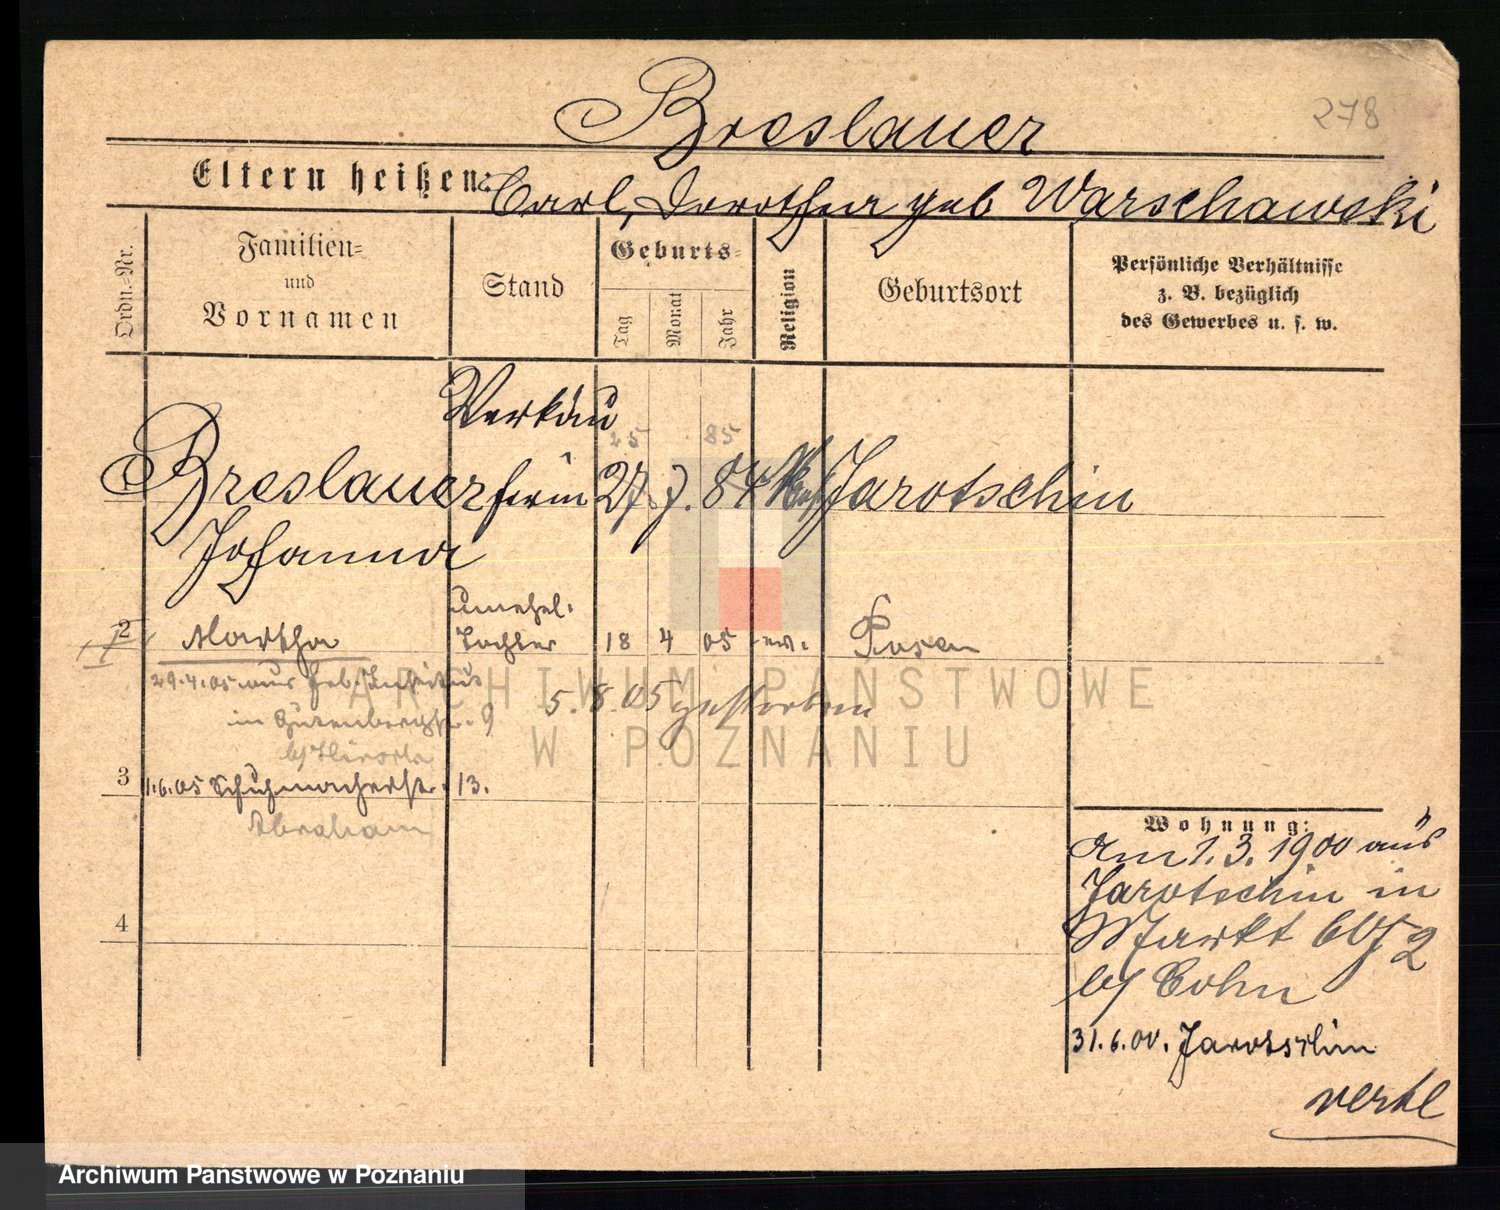 278
Breslauer
Eltern heißen: Carl, Dorothea geb Warschawski
Ordn.-Nr.
Familien- und Vornamen
Stand
Geburts-
Tag
Monat
Jahr
Religion
Geburtsort
Persönliche Verhältnisse
z. B. bezüglich
des Gewerbes u. s. w.
Verkäu
25 85
1 Breslauer ferin 27. 7. 84 Jarotschin
Johanna
unehel.
2 Martha Tochter 18 4 05 Posen
29.4.05 aus
5.8.05 gestorben
in Gutenbergstr. 9
3 1.6.05 Schuhmacherstr. 13.
Abraham
4
Wohnung:
Am 1.3.1900 aus
Jarotschin in
Markt
b/ Cohn
31.6.00. Jarotschin
verte
ARCHIWUM PAŃSTWOWE
W POZNANIU
Archiwum Państwowe w Poznaniu